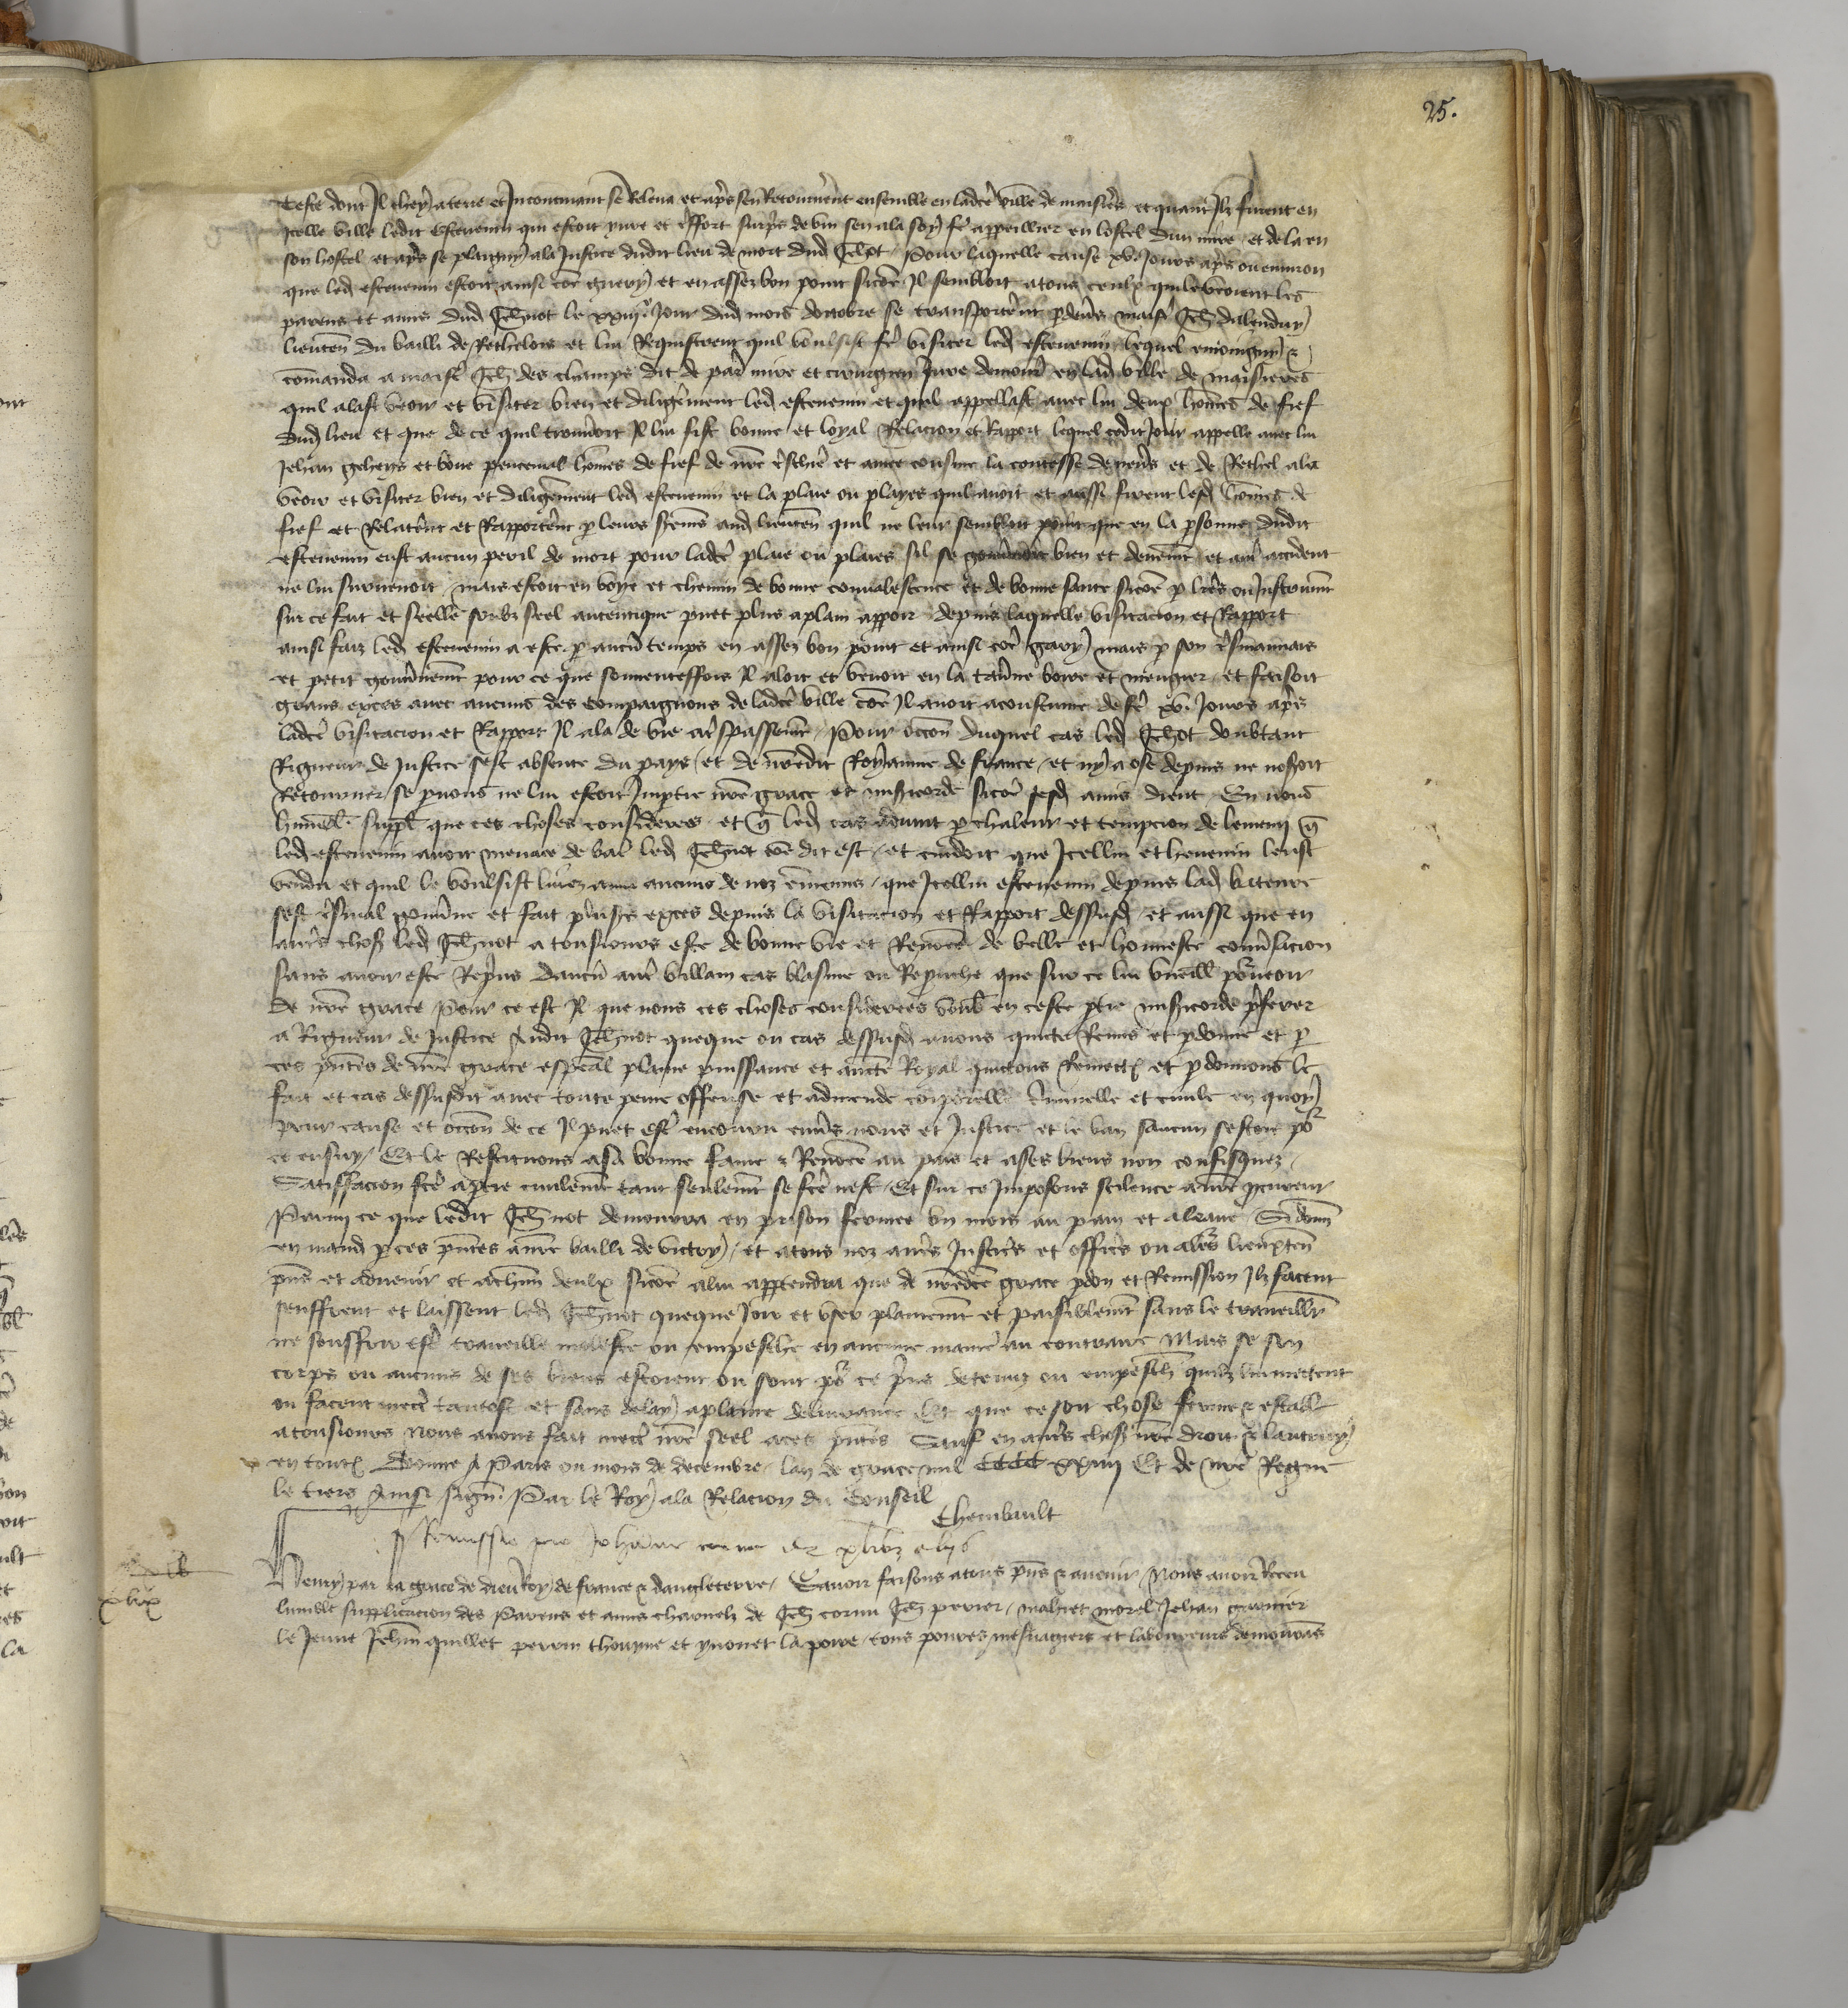 25.
teste dont Il chey a terre et Incontinant se Releva et apres sen Retournerent ensemble en ladce ville de maisieres et quant Ilz furent en
Icelle ville ledit estevenin qui estoit yvre et fort surprs de vin sen ala soy fe appeillier en lostel dun mire et de la en
son hostel et apres se plaigny a la Justice dudit lieu de mort dud Jehnot Pour laquelle cause xv Jours apres ou environ
que led estevenin estoit ainsi coe guery et en assez bon point sicoe Il sembloit a tous ceulx qui le veoient les
parens et amis dud Jehnot le xxiiije Jour dud mois doctobre se transporterent p devers maist Jeh
lieuten du bailli de Rethelois et lui Requistrent quil voulsist fe visiter led estevenin lequel enioigny &
comanda a maist Jeh des champs dit de par mire et cirurgien Jure demour en lad ville de maisieres
quil alast veoir et visiter bien et diligement led estevenin et quil appellast avec lui deux homes de fief
dud lieu et que de ce quil trouveroit Il lui fist bonne et loyal Relacion et Rapport lequel cedit Jour appelle avec lui
Jehan et homes de fief de nre treschiere et amee cousine la contesse de nevrs et de Rethel ala
veoir et visiter bien et diligement led estevenin et la plaie ou playes quil avoit et aussi firent lesd homes de
fief et Relaterent et Rapporterent p leurs sermens aud lieuten quil ne leur sembloit point que en la psonne dudit
estevenin eust aucun peril de mort pour ladce plaie ou plaies sil se gouvernoit bien et deuement et autre accident
ne lui survenoit mais estoit en voye et chemin de bonne convalescence et de bonne sante sicoe p lres ou Instrument
sur ce fait et seelle soubz seel autentique puet plus a plain apparoir depuis laquelle visitacion et Rapport
ainsi faiz led estevenin a este p aucun temps en assez bon point et ainsi coe gary mais p son tresmauvais
et petit gouvernement pour ce que souventeffois Il aloit et venoit en la taverne boire et mengier et faisoit
grans exces avec aucuns des compaignons de ladce ville coe Il avoit acoustume de fe xvi Jours apres
ladce visitacion et Rapport Il ala de vie a trespassement Pour occon duquel cas led Jehnot doubtant
Rigueur de Justice sest absente du pays et de nredit Royaume de france et ny a ose depuis ne noseroit
Retourner se pvons ne lui estoit Impartie nre grace et misericorde sicoe sesd amis dient En nous
humblemt suppl que ces choses considerees et q led cas advint p chaleur et tempcion de lennemi q
led estevenin avoit menace de batre led Jehnot coe dit est et cuidoit que Icellui estevenin leust
vendu et quil le voulsist livrer a aucuns de noz ennemis que Icellui estevenin depuis lad bateure
sest tresmal gouverne et fait plusrs exces depuis la visitacion et Rapport dessusd et aussi que en
autres choses led Jehnot a tousiours este de bonne vie et Renomee de belle et honneste conversacion
sans avoir este Reprins daucun autre villain cas blasme ou Reprouche que sur ce lui vueill pourveoir
de nre grace Pour ce est Il que nous ces choses considerees voul en ceste ptie misericorde preferer
a Rigueur de Justice Audit Jehnot queque ou cas dessusd avons quicte Remis et pdonne et p
ces pntes de nre grace especial plaine puissance et aucte Royal quictons Remect et pdonnons le
fait et cas dessusdit avec toute peine offense et admende corporelle criminelle et civile en quoy
pour cause et occon de ce Il puet estre encouru envers nous et Justice et le ban saucun sestoit por
ce ensuy Et le Restituons a sa bonne fame & Renomee au pais et a ses biens non confisquez
Satisfacion fce a ptie civilement tant seulement se fce nest Et sur ce Imposons scilence a nre procureur
Parmi ce que ledit Jehnot demourra en prison fermee un mois au pain et a leaue Si donn
en mand p ces pntes a nre bailli de vitry et a tous noz autres Justiciers et officiers ou a leurs lieuxten
pns et advenir et a chun deulx sicoe a lui appartendra que de nredce grace pdon et Remission Ilz facent
seuffrent et laissent led Jehnot queque Joir et user plainement et paisiblement sans le traveillr
ne souffrir estre traveille moleste ou empesche en aucune maniere au contraire Mais se son
corps ou aucuns de ses biens estoient ou sont por ce prins detenuz ou empesch quilz lui mettent
ou facent mectre tantost et sans delay a plaine delivrance Et que ce soit chose ferme & estable
a tousiours Nous avons fait mectre nre seel a ces pntes Sauf en autres choses nre droit & lautruy
en toutes Donne A Paris ou mois de decembre lan de grace mil CCCC xxiiij Et de nre Regne
le tiers Ainsi signe Par le Roy a la Relacion du Conseil
Thembault
Remissio pro Johanne
xlix
Henry par la grace de dieu Roy de france & dangleterre Savoir faisons a tous pns & avenir Nous avoir Receu
lumble supplicacion des Parens et amis charnelz de Jeh cornu Jeh perier morel Jehan garnier
le Jeune Jehan quillet perrin thouyne et ynonet la poire tous povres mesnagiers et laboureurs demourans